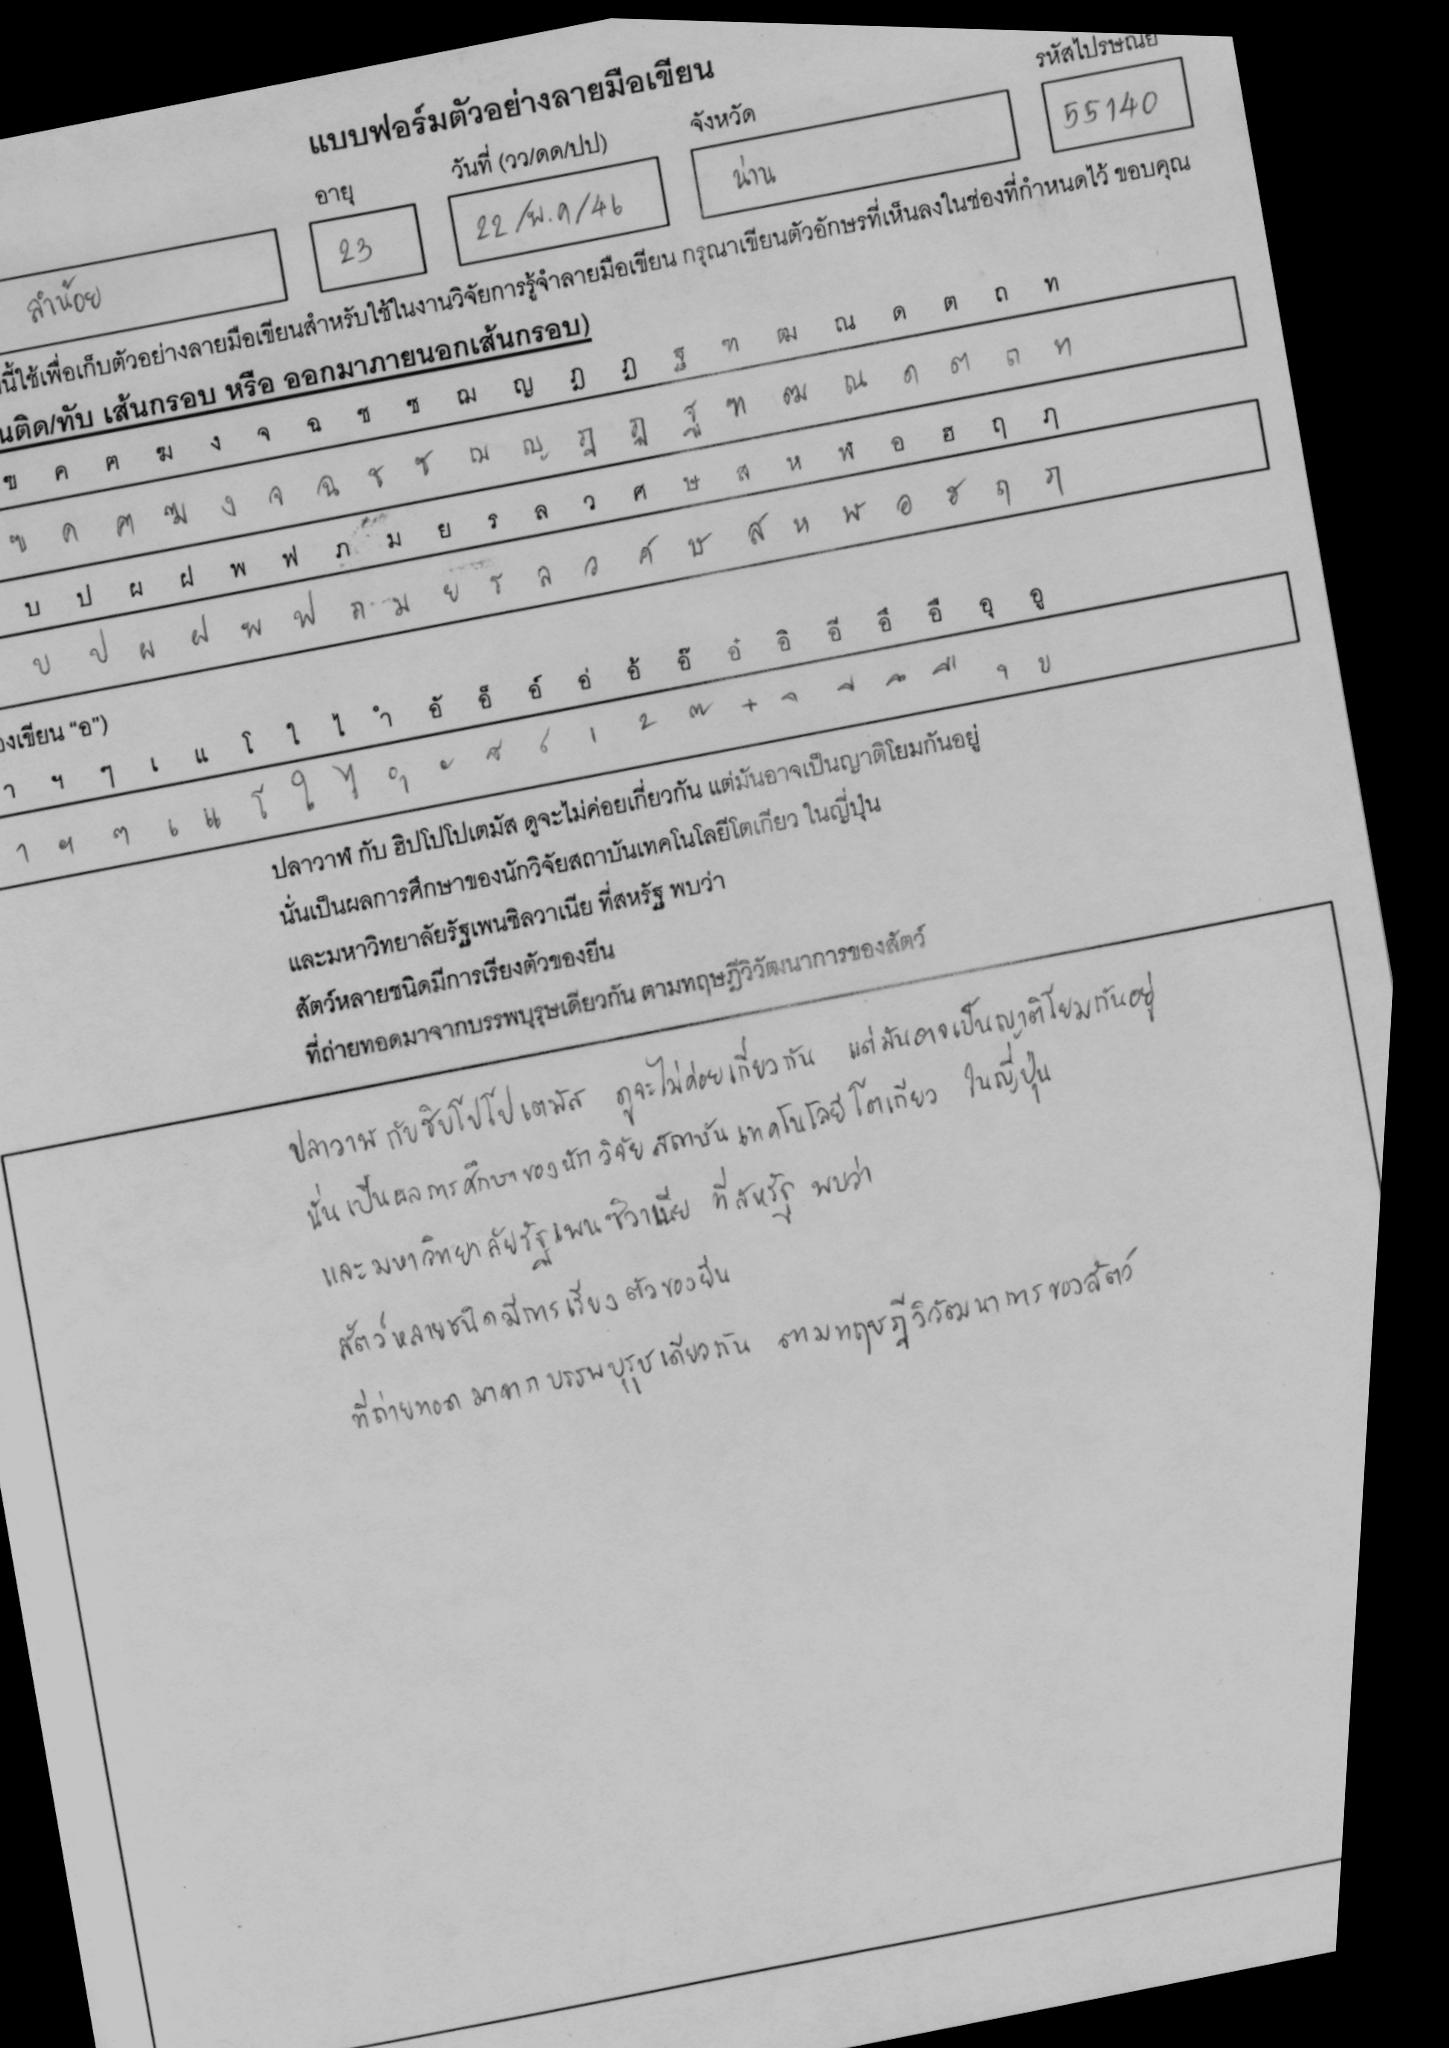 แบบฟอร์มตัวอย่างลายมือเขียน
อายุ วันที่ (วว/ดด/ปป) จังหวัด รหัสไปรษณีย์
ลำน้อย 23 22/พ.ค/46 น่าน 55140
นี้ใช้เพื่อเก็บตัวอย่างลายมือเขียนสำหรับใช้ในงานวิจัยการรู้จำลายมือเขียน กรุณาเขียนตัวอักษรที่เห็นลงในช่องที่กำหนดไว้ ขอบคุณ
นติด/ทับ เส้นกรอบ หรือ ออกมาภายนอกเส้นกรอบ)
ฃ ค ฅ ฆ ง จ ฉ ช ซ ฌ ญ ฎ ฏ ฐ ฑ ฒ ณ ด ต ถ ท
ฃ ค ฅ ฆ ง จ ฉ ช ซ ฌ ญ ฎ ฏ ฐ ฑ ฒ ณ ด ต ถ ท
บ ป ผ ฝ พ ฟ ภ ม ย ร ล ว ศ ษ ส ห ฬ อ ฮ ฤ ฦ
บ ป ผ ฝ พ ฟ ภ ม ย ร ล ว ศ ษ ส ห ฬ อ ฮ ฤ ฦ
องเขียน "อ")
า ฯ ๆ เ แ โ ใ ไ ำ อั อ็ อ์ อ่ อ้ อ๊ อ๋ อิ อี อึ อื อุ อู
า ฯ ๆ เ แ โ ใ ไ ำ ั ็ ์ ่ ้ ๊ ๋ ิ ี ึ ื ุ ู
ปลาวาฬ กับ ฮิปโปโปเตมัส ดูจะไม่ค่อยเกี่ยวกัน แต่มันอาจเป็นญาติโยมกันอยู่
นั่นเป็นผลการศึกษาของนักวิจัยสถาบันเทคโนโลยีโตเกียว ในญี่ปุ่น
และมหาวิทยาลัยรัฐเพนซิลวาเนีย ที่สหรัฐ พบว่า
สัตว์หลายชนิดมีการเรียงตัวของยีน
ที่ถ่ายทอดมาจากบรรพบุรุษเดียวกัน ตามทฤษฎีวิวัฒนาการของสัตว์
ปลาวาฬ กับฮิปโปโปเตมัส ดูจะไม่ค่อยเกี่ยวกัน แต่มันอาจเป็นญาติโยมกันอยู่
นั่นเป็นผลการศึกษาของนักวิจัยสถาบันเทคโนโลยีโตเกียว ในญี่ปุ่น
และมหาวิทยาลัยรัฐเพนซิวาเนีย ที่สหรัฐ พบว่า
สัตว์หลายชนิดมีการเรียงตัวของยีน
ที่ถ่ายทอดมาจากบรรพบุรุษเดียวกัน ตามทฤษฎีวิวัฒนาการของสัตว์